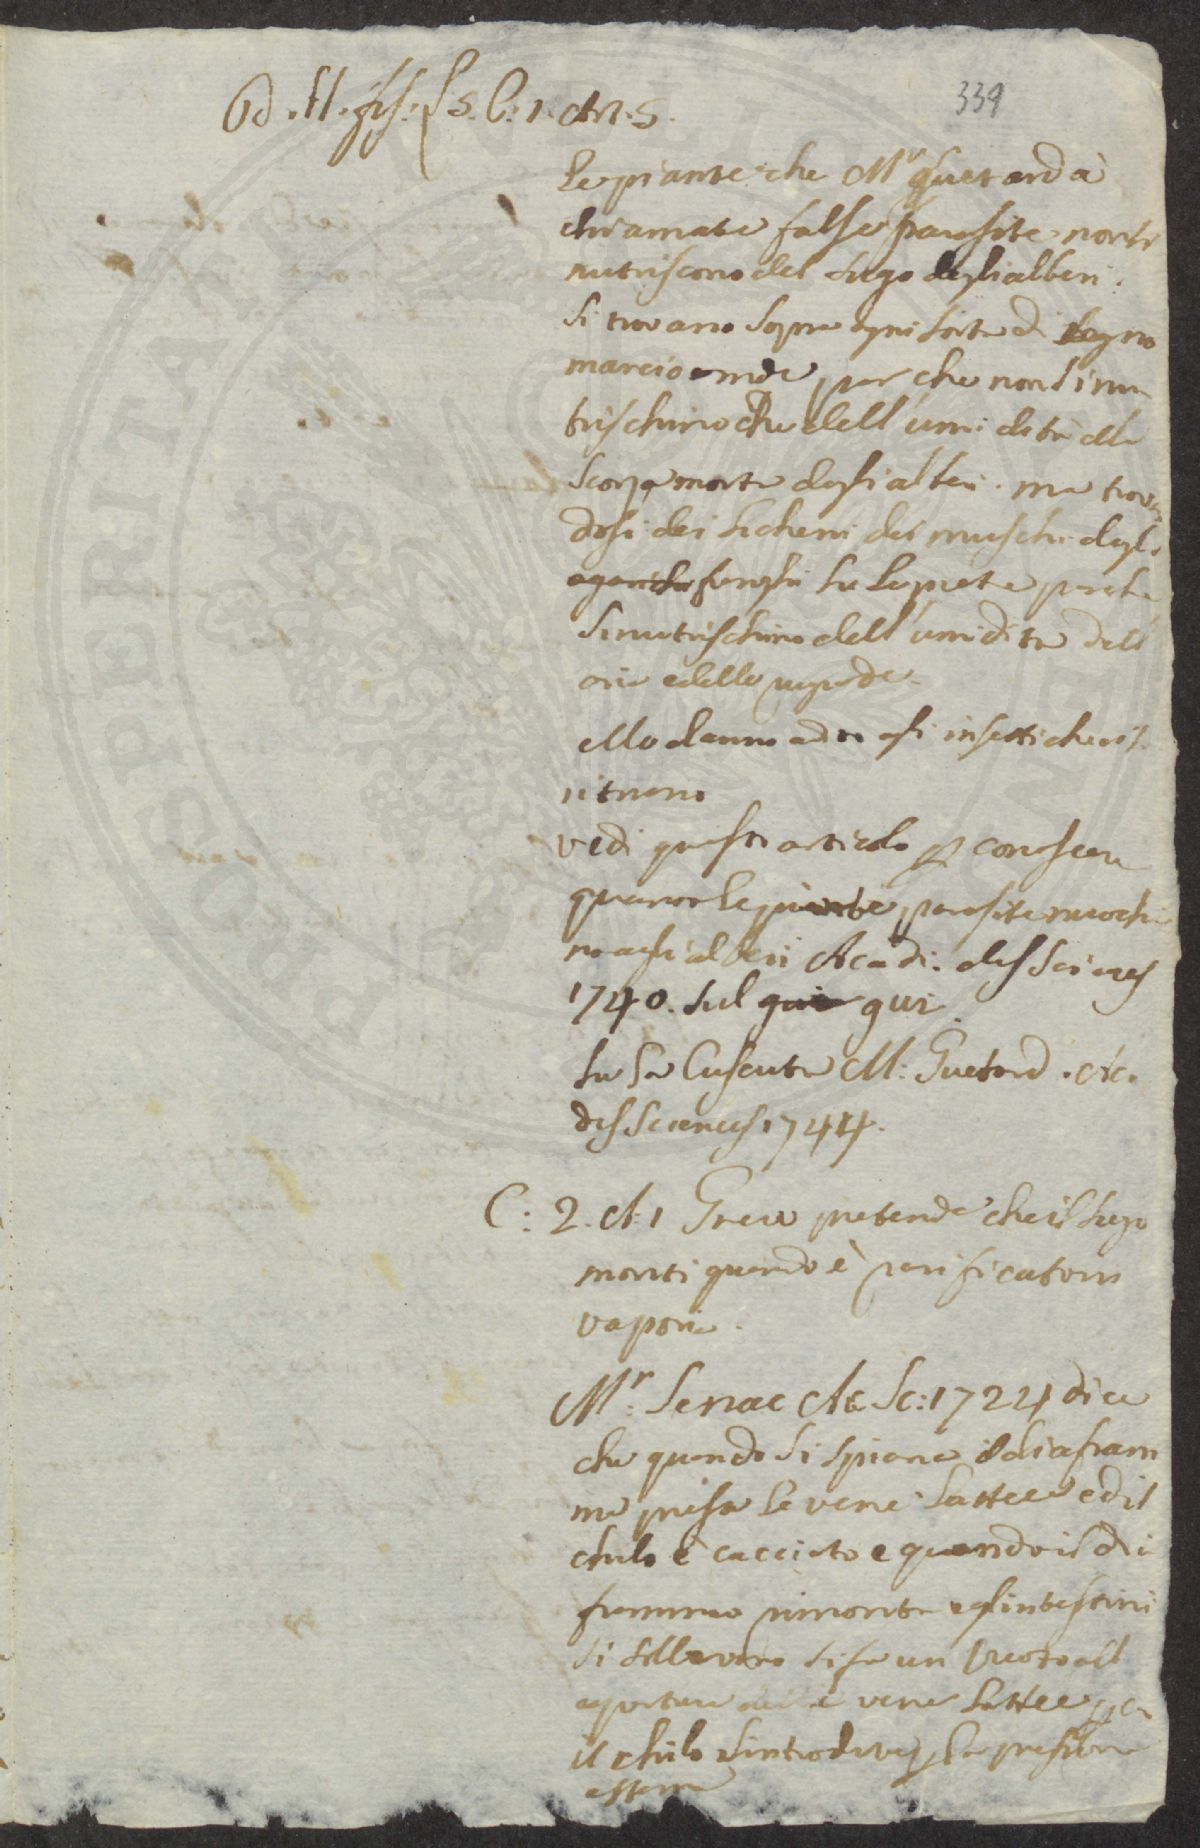 339
L 5. C: 1. Art. 5.
le piante che Mr. Guetard à
chiamate false parasite non si
nutriscono del sugo degli alberi.
si trovano sopra ogni sorta di legno
marcio onde par che non si nu
trischino che dell'umidità della
scorza morta degli alberi. ma trovan
dosi dei licheni dei muschi degl
funghi su le piete parche
si nutrischino dell'umidità dell
aria e delle rugiade.
danno agli insetti che vi si
ritirano
vedi questi articolo p conoscere
quanto le piante parasite nuochi
no agli alberi Acadi. des Sciences
1740. sul gui
su la Cuscuta M: Guetard. Ac.
des Sciences 1744.
C: 2. A: 1 Grew pretende che il sugo
monti quando è in
vapori.
Mr. Senac Ac Sc: 1724 dice
che quando si spiana il diafram
ma pressa le vene lattee ed il
chilo è cacciato e quando il dia
framma rimonta e gl'intestini
si sollevano si fa un vuoto all
apertura delle vene lattee per
il chilo s'introduce p la pressione
esterna